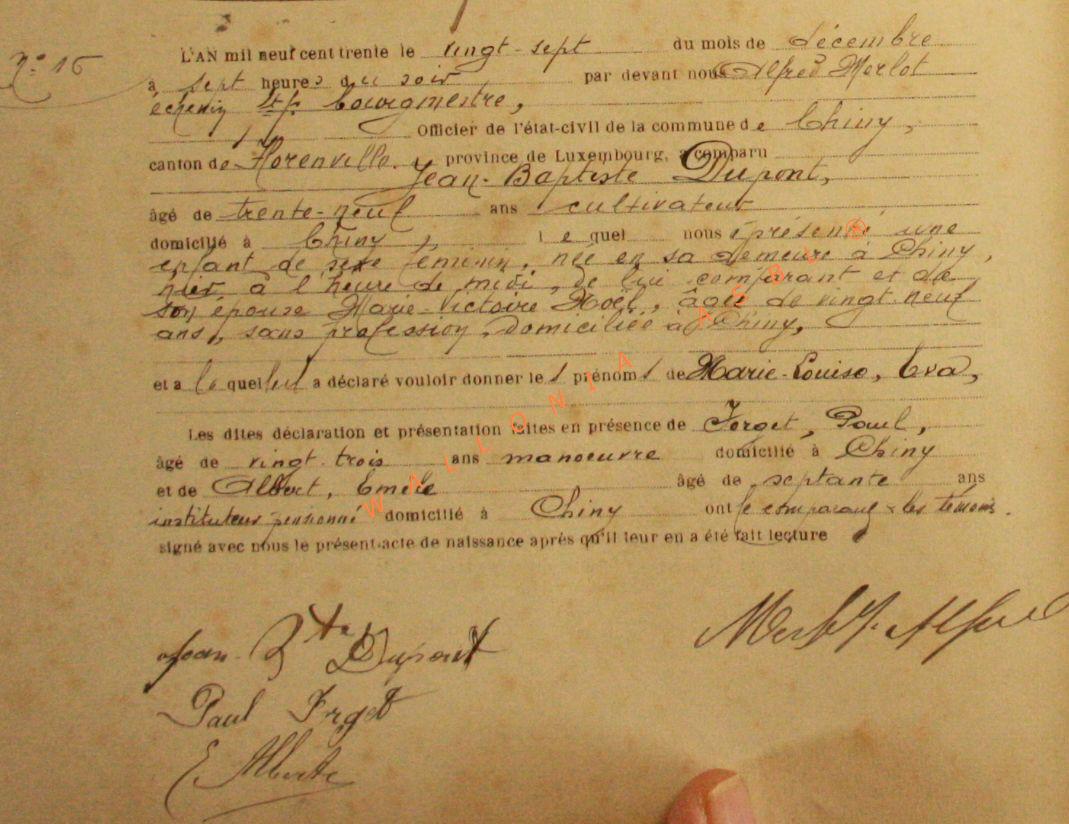 N° 16
L'AN mil neuf cent trente le vingt-sept du mois de décembre
à sept heures du soir par devant nous Alfred Merlot
échevin bourgmestre,
Officier de l'état-civil de la commune de Chiny,
canton de Florenville, province de Luxembourg, a comparu
Jean-Baptiste Dupont,
âgé de trente-neuf ans cultivateur
domicilié à Chiny, le quel nous a présenté une
enfant de sexe féminin, née en sa demeure à Chiny,
hier à l'heure de midi, de lui comparant et de
son épouse Marie-Victoire Noël, âgée de vingt-neuf
ans, sans profession, domiciliée à Chiny,
et a la quel a déclaré vouloir donner les prénoms de Marie-Louise, Eva,
Les dites déclaration et présentation faites en présence de Forget, Paul,
âgé de vingt-trois ans manoeuvre domicilié à Chiny
et de Albert, Emile âgé de septante ans
instituteur pensionné domicilié à Chiny ont le comparant & les témoins.
signé avec nous le présent acte de naissance après qu'il leur en a été fait lecture
Jean-Bte Dupont
Merlot Alfred
Paul Forget
E. Albert
WALLONIA ASBL ©